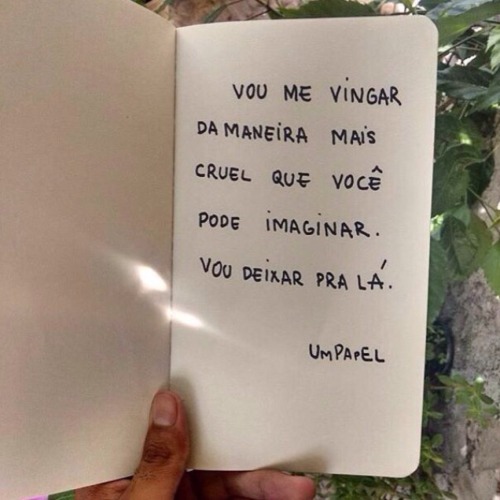 VOU ME VINGAR
DA MANEIRA MAIS
CRUEL QUE VOCÊ
PODE IMAGINAR.
VOU DEIXAR PRA LÁ.
UMPAPEL